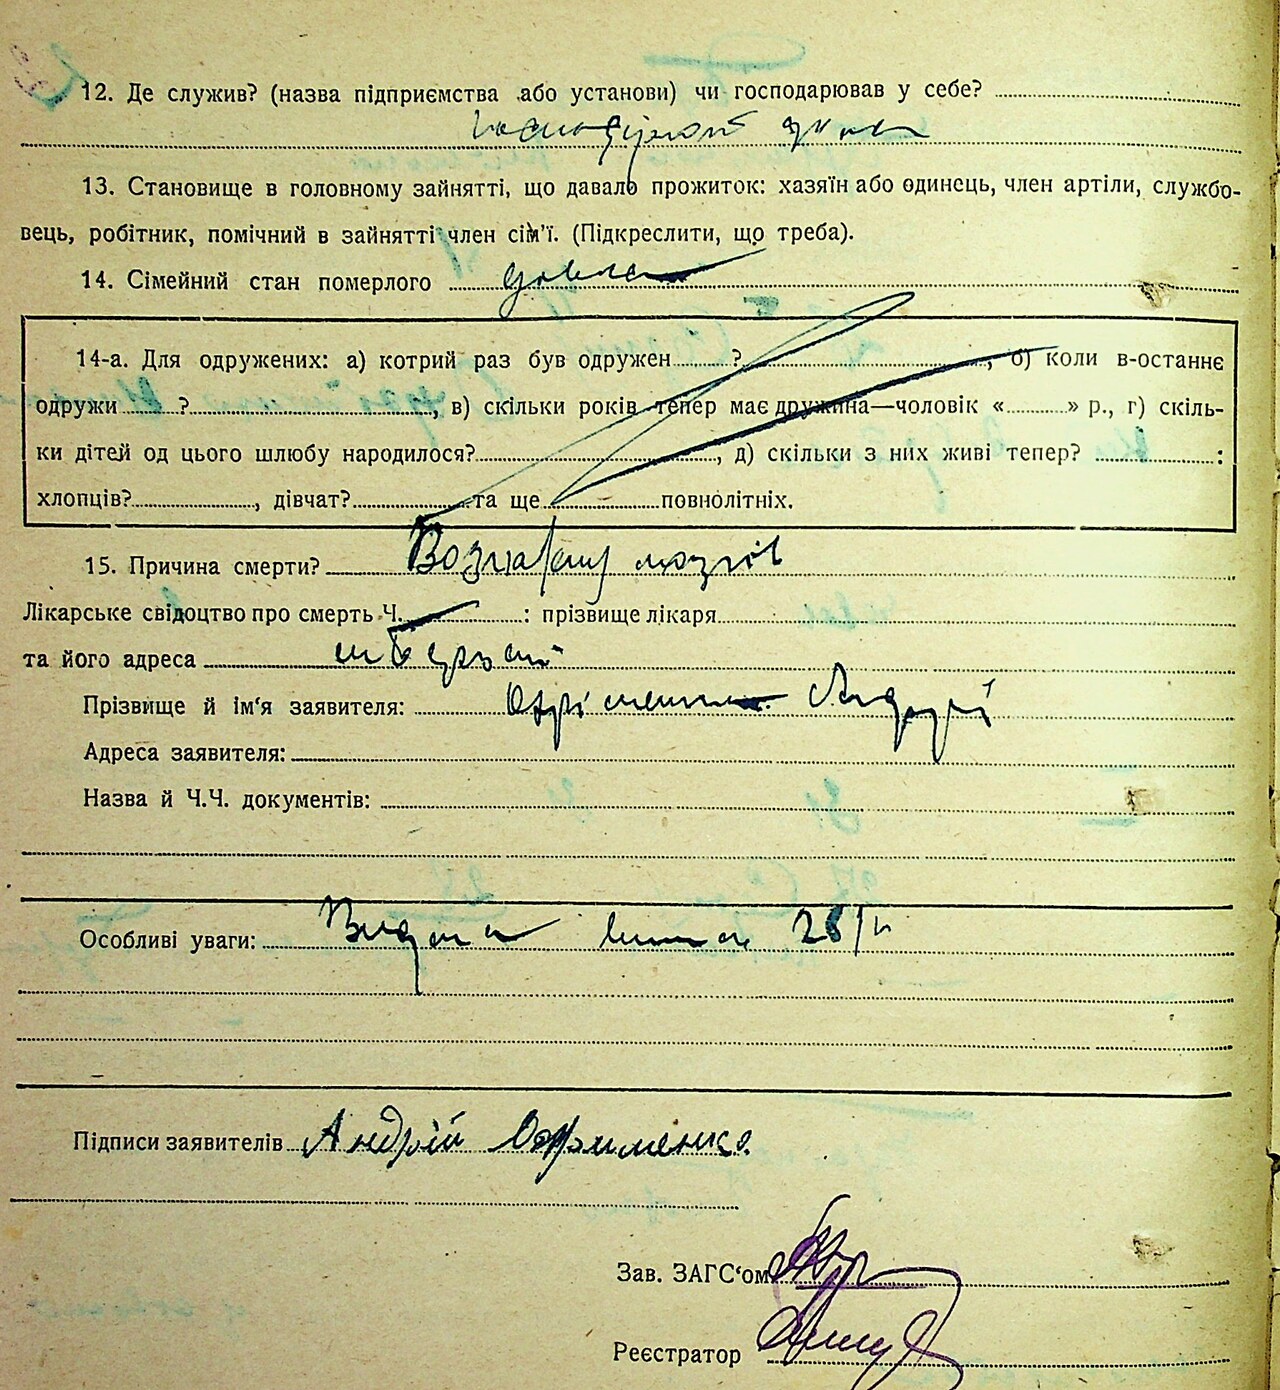 12. Де служив? (назва підприємства або установи) чи господарював у себе?
13. Становище в головному зайнятті, що давало прожиток: хазяїн або одинець, член артіли, службо-
вець, робітник, помічний в зайнятті член сім'ї. (Підкреслити, що треба).
14. Сімейний стан померлого вдова
14-а. Для одружених: а) котрий раз був одружен ?, б) коли в-останнє
одружи ?, в) скільки років тепер має дружина—чоловік « » р., г) скіль-
ки дітей од цього шлюбу народилося?, д) скільки з них живі тепер? :
хлопців?, дівчат? та ще повнолітніх.
15. Причина смерти?
Лікарське свідоцтво про смерть Ч. : прізвище лікаря
та його адреса
Прізвище й ім'я заявителя: Охріменко Андрій
Адреса заявителя:
Назва й Ч.Ч. документів:
Особливі уваги: Видана
Підписи заявителів Андрій Охрименко
Зав. ЗАГС'ом
Реєстратор